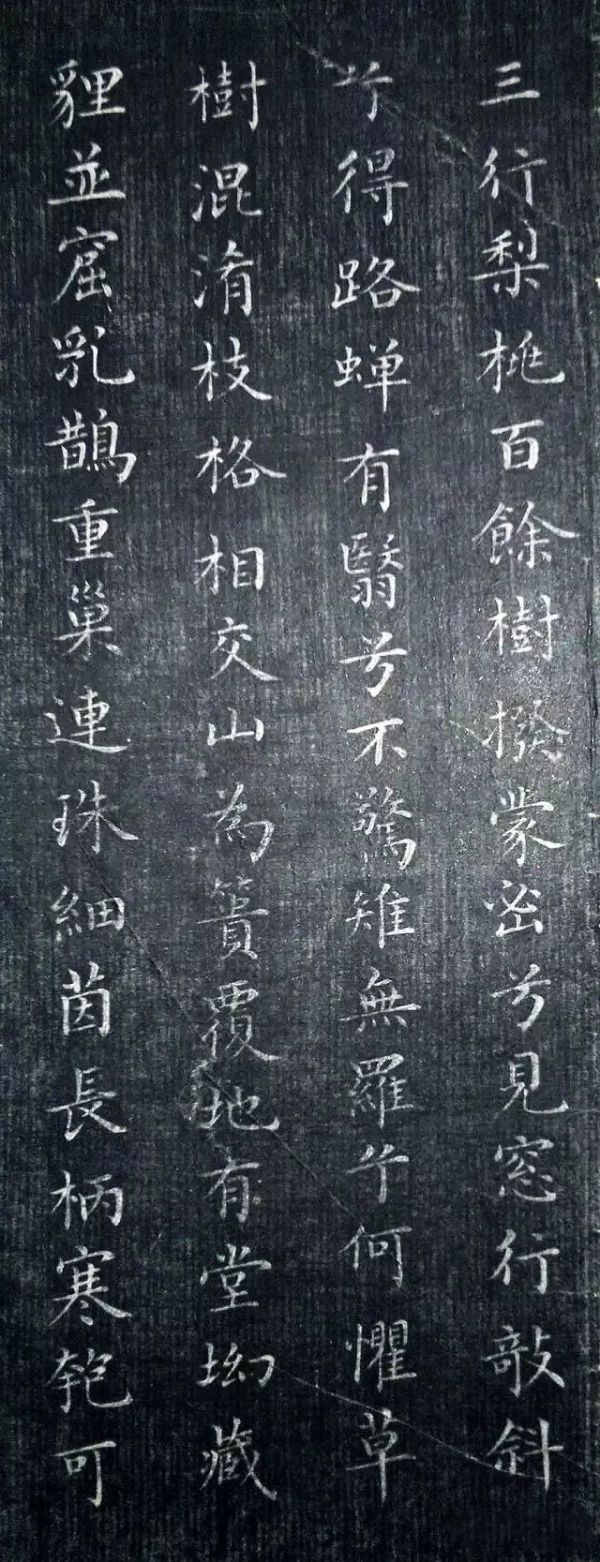 三行梨桃百餘樹撥蒙密兮見窓行敧斜
兮得路蟬有翳兮不驚雉無羅兮何懼草
樹混淆枝格相交山為簣覆地有堂坳藏
貍並窟乳鵲重巢連珠細茵長柄寒匏可